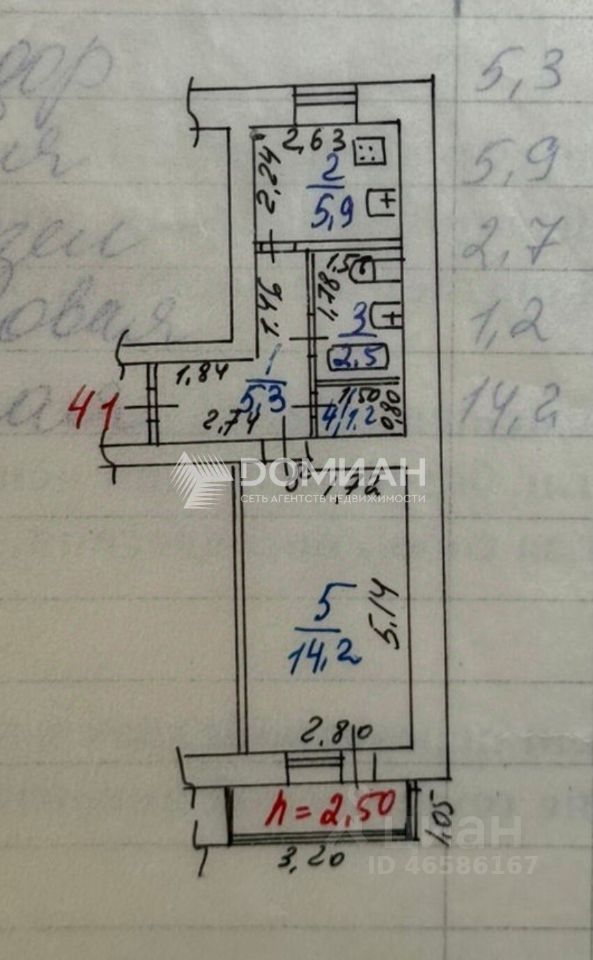 5,3
5,9
2,7
1,2
14,2
2,63
2,24
2
5,9
1,46
1,78
3
2,5
1,84
1
5,3
41
2,74
1,50
4/1,2
0,80
ДОМИАН
СЕТЬ АГЕНТСТВ НЕДВИЖИМОСТИ
5
14,2
5,14
2,80
h = 2,50
1,05
3,20
циан
ID 46586167